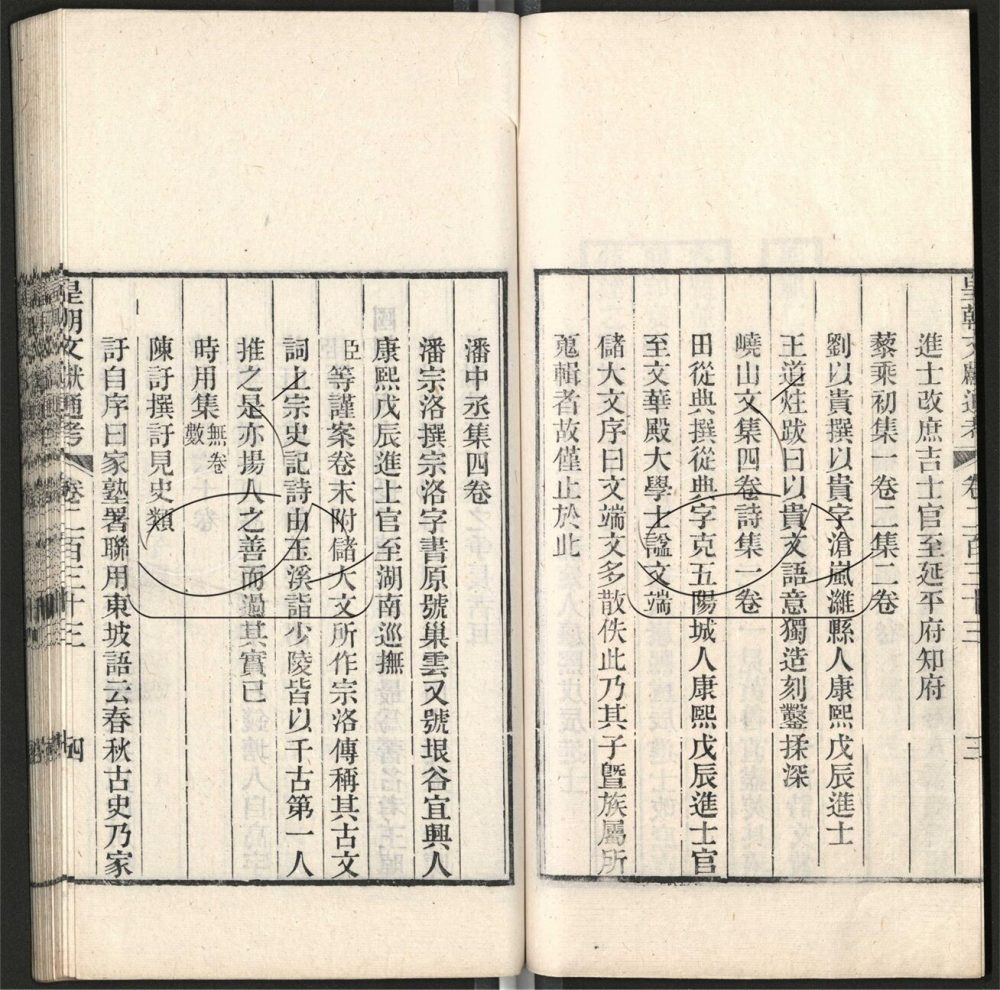 皇朝文獻通考 卷二百三十三 三
進士改庶吉士官至延平府知府
藜乘初集一卷二集二卷
劉以貴撰以貴字滄嵐濰縣人康熙戊辰進士
王道炷跋曰以貴文語意獨造刻鑿揉深
嶢山文集四卷詩集一卷
田從典撰從典字克五陽城人康熙戊辰進士官
至文華殿大學士諡文端
儲大文序曰文端文多散佚此乃其子曁族屬所
蒐輯者故僅止於此
潘中丞集四卷
潘宗洛撰宗洛字書原號巢雲又號垠谷宜興人
康熙戊辰進士官至湖南巡撫
臣等謹案卷末附儲大文所作宗洛傳稱其古文
詞上宗史記詩由玉溪詣少陵皆以千古第一人
推之是亦揚人之善而過其實已
時用集無卷數
陳訏撰訏見史類
訏自序曰家塾署聯用東坡語云春秋古史乃家
皇朝文獻通考 卷二百三十三 四